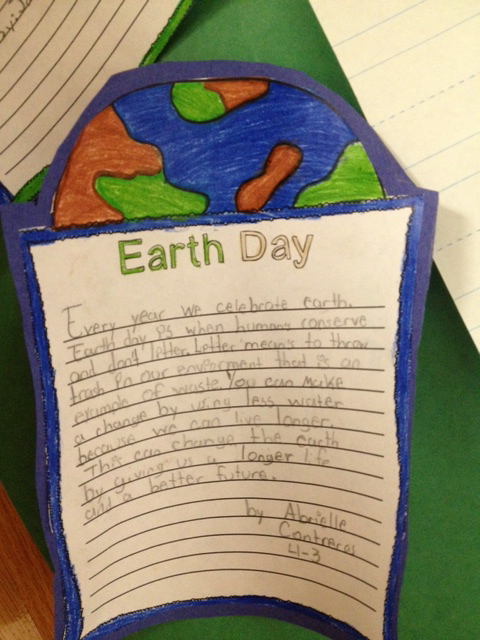 Earth Day
Every year we celebrate earth.
Earth day is when humans conserve
and don't litter. Letter means to throw
trash in our enviorment that is an
example of waste. You can make
a change by using less water
because we can live longer.
This can change the earth
by giving us a longer life
and a better future.
by Abrielle
Contreras
4-3